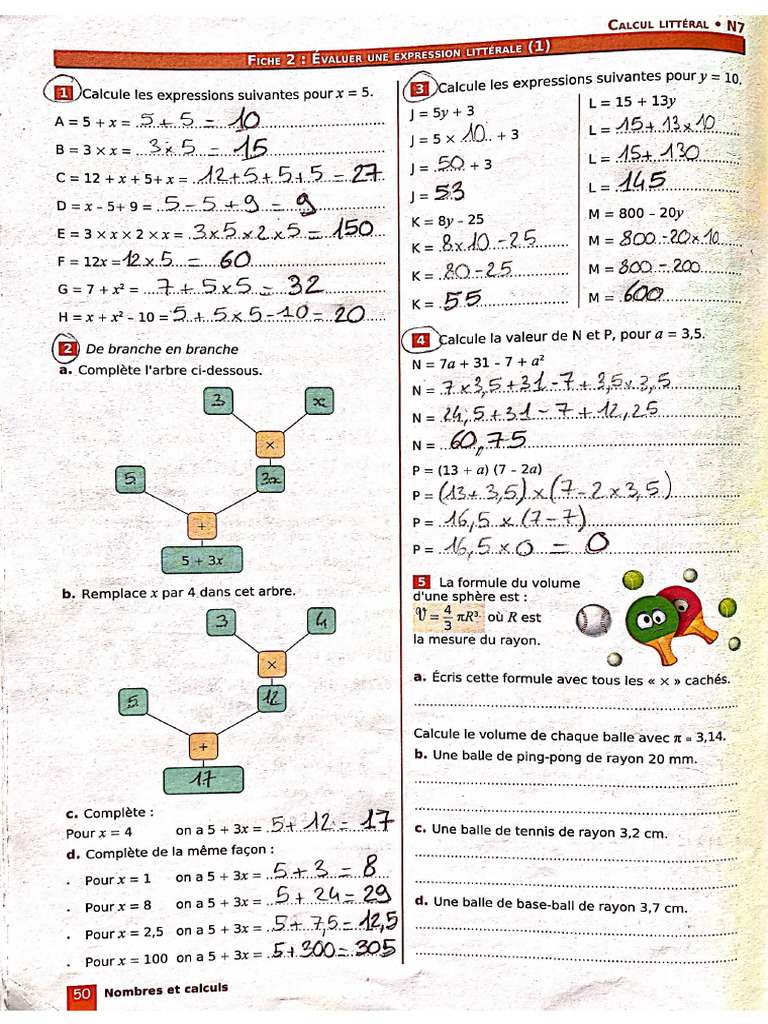 CALCUL LITTÉRAL • N7
FICHE 2 : ÉVALUER UNE EXPRESSION LITTÉRALE (1)
1 Calcule les expressions suivantes pour x = 5.
A = 5 + x = 5 + 5 = 10
B = 3 × x = 3 x 5 = 15
C = 12 + x + 5 + x = 12 + 5 + 5 + 5 = 27
D = x - 5 + 9 = 5 - 5 + 9 = 9
E = 3 × x × 2 × x = 3 x 5 x 2 x 5 = 150
F = 12x = 12 x 5 = 60
G = 7 + x² = 7 + 5 x 5 = 32
H = x + x² - 10 = 5 + 5 x 5 - 10 = 20
2 De branche en branche
a. Complète l'arbre ci-dessous.
3 x
×
5 3x
+
5 + 3x
b. Remplace x par 4 dans cet arbre.
3 4
×
5 12
+
17
c. Complète :
Pour x = 4 on a 5 + 3x = 5 + 12 = 17
d. Complète de la même façon :
. Pour x = 1 on a 5 + 3x = 5 + 3 = 8
. Pour x = 8 on a 5 + 3x = 5 + 24 = 29
. Pour x = 2,5 on a 5 + 3x = 5 + 7,5 = 12,5
. Pour x = 100 on a 5 + 3x = 5 + 300 = 305
50 Nombres et calculs
3 Calcule les expressions suivantes pour y = 10.
J = 5y + 3
J = 5 × 10 + 3
J = 50 + 3
J = 53
K = 8y - 25
K = 8 x 10 - 25
K = 80 - 25
K = 55
L = 15 + 13y
L = 15 + 13 x 10
L = 15 + 130
L = 145
M = 800 - 20y
M = 800 - 20 x 10
M = 800 - 200
M = 600
4 Calcule la valeur de N et P, pour a = 3,5.
N = 7a + 31 - 7 + a²
N = 7 x 3,5 + 31 - 7 + 3,5 x 3,5
N = 24,5 + 31 - 7 + 12,25
N = 60,75
P = (13 + a) (7 - 2a)
P = (13 + 3,5) x (7 - 2 x 3,5)
P = 16,5 x (7 - 7)
P = 16,5 x 0 = 0
5 La formule du volume
d'une sphère est :
V = 4/3 πR³ où R est
la mesure du rayon.
a. Écris cette formule avec tous les « × » cachés.
Calcule le volume de chaque balle avec π ≈ 3,14.
b. Une balle de ping-pong de rayon 20 mm.
c. Une balle de tennis de rayon 3,2 cm.
d. Une balle de base-ball de rayon 3,7 cm.